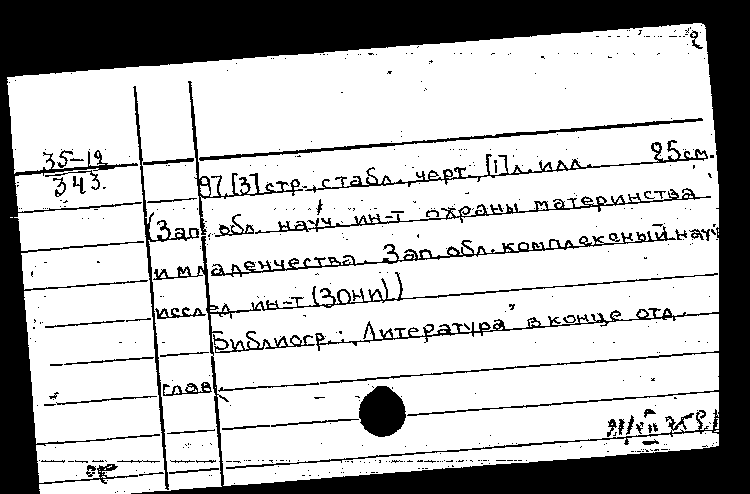 2
35-12
343.
97,[3]стр., с табл., черт., [1]л. илл. 25см.
(Зап. обл. науч. ин-т охраны материнства
и младенчества. Зап. обл. комплексный науч
исслед. ин-т (ЗОНИ))
Библиогр.: „Литература" в конце отд.
глав.